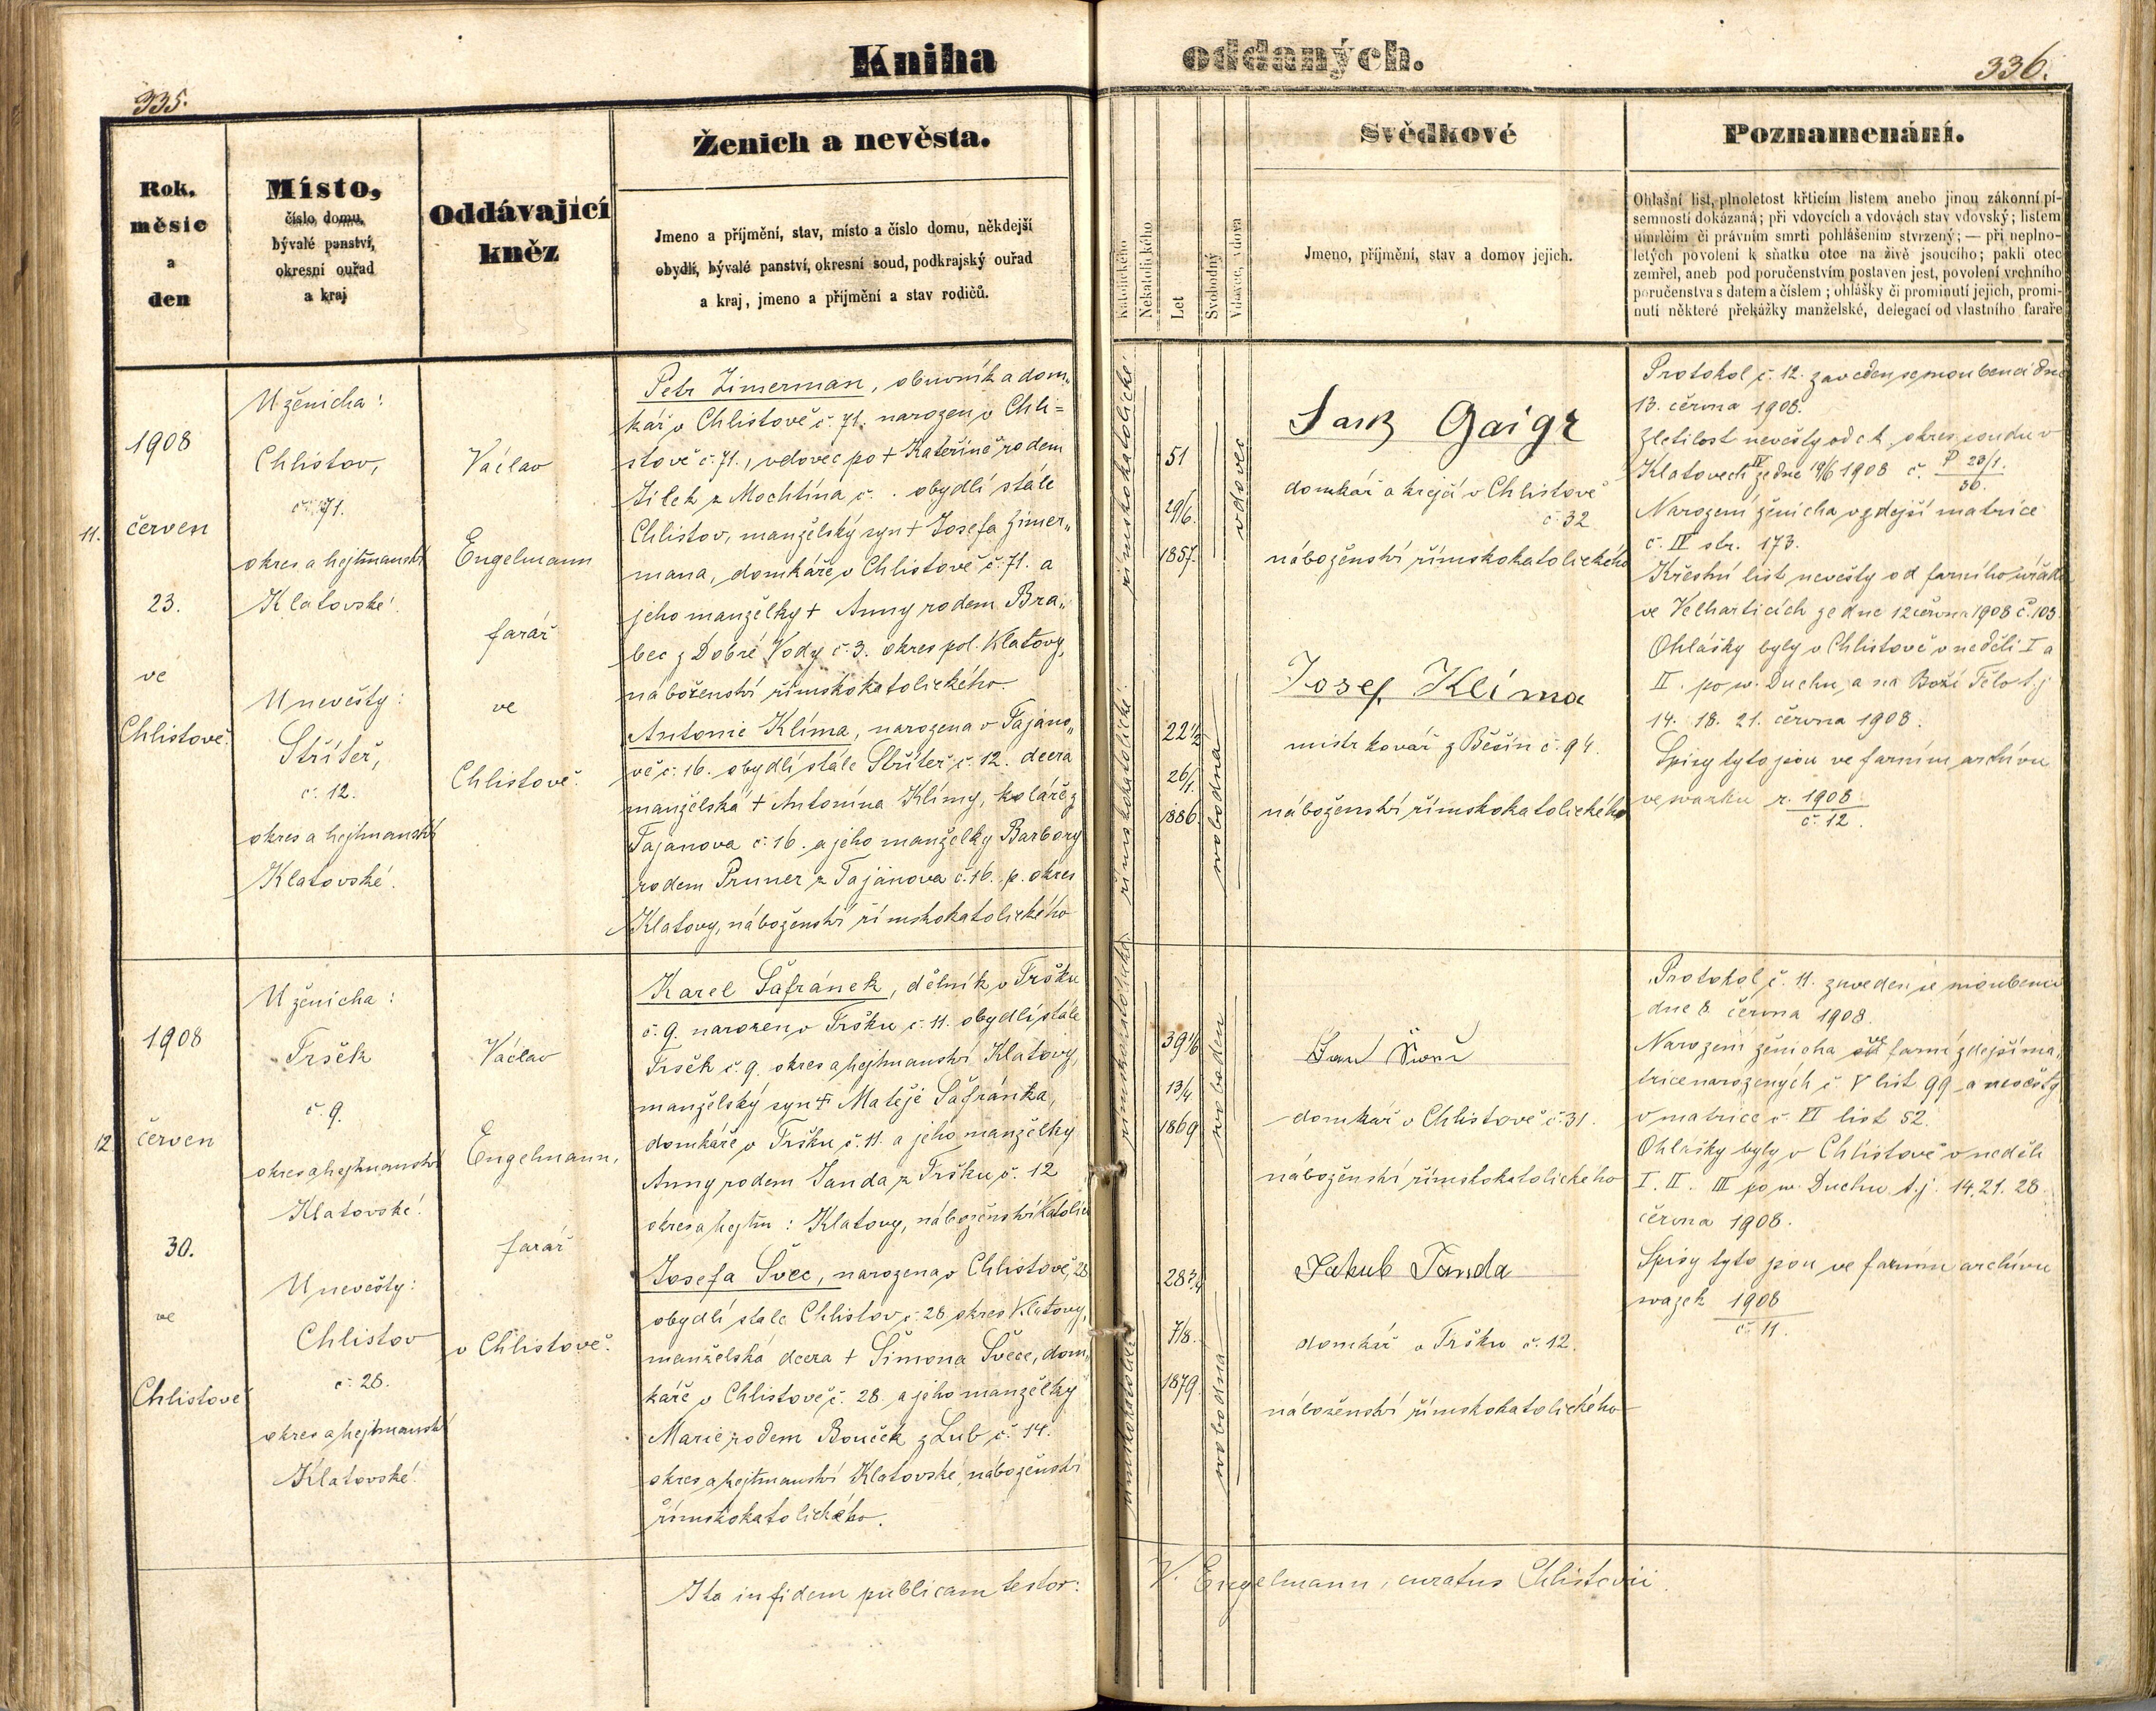 Kniha oddaných.
335.
336.
Rok,
měsíc
a
den
Místo,
číslo domu,
bývalé panství,
okresní ouřad
a kraj
Oddávající
kněz
Ženich a nevěsta.
Jmeno a příjmění, stav, místo a číslo domu, někdejší
obydlí, bývalé panství, okresní soud, podkrajský ouřad
a kraj, jmeno a příjmění a stav rodičů.
Katolického
Nekatolického
Let
Svobodný
Vdovec, vdova
Svědkové
Jmeno, příjmění, stav a domov jejich.
Poznamenání.
Ohlašní list, plnoletost křticím listem anebo jinou zákonní pí-
semností dokázaná; při vdovcích a vdovách stav vdovský; listem
úmrlčím či právním smrti pohlášením stvrzený; — při neplno-
letých povolení k sňatku otce na živě jsoucího; pakli otec
zemřel, aneb pod poručenstvím postaven jest, povolení vrchního
poručenstva s datem a číslem; ohlášky či prominutí jejich, promi-
nutí některé překážky manželské, delegací od vlastního faráře
11.
1908
červen
23.
ve
Chlistově.
U ženicha:
Chlistov,
č. 71.
okres a hejtmanství
Klatovské.
U nevěsty:
Střiteř,
č. 12.
okres a hejtmanství
Klatovské.
Václav
Engelmann
farář
ve
Chlistově.
Petr Zimerman, obuvník a dom„
kář v Chlistově č. 71. narozen v Chli=
stově č. 71., vdovec po + Kateřině rodem
Žilek z Mochtína č. . obydlí stále
Chlistov, manželský syn + Josefa Zimer„
mana, domkáře v Chlistově č. 71. a
jeho manželky + Anny rodem Bra„
bec z Dobré Vody č. 3. okres pol. Klatovy,
náboženství římskokatolického.
Antonie Klíma, narozena v Tajano„
vě č. 16. obydlí stále Střiteř č. 12. dcera
manželská + Antonína Klímy, koláře z
Tajanova č. 16. a jeho manželky Barbory
rodem Pruner z Tajanova č. 16. p. okres
Klatovy, náboženství římskokatolického
římskokatolické
51
29/6.
1857.
vdovec
římskokatolické.
22 1/2
26/1.
1886
svobodná
Jank Gaigr
domkář a krejčí v Chlistově
č. 32
náboženství římskokatolického
Josef Klíma
mistr kovář z Běšin č. 94.
náboženství římskokatolického
Protokol č. 12. zaveden se snoubenci dne
13. června 1908.
Zletilost nevěsty od c.k. okres. soudu v
Klatovech IV ze dne 19/6 1908 č. P 23/1.
36.
Narození ženicha v zdejší matrice
č. IV str. 173.
Křestní list nevěsty od farního úřadu
ve Velharticích ze dne 12 června 1908 č. 103.
Ohlášky byly v Chlistově v neděli I a
II. po sv. Duchu, a na Boží Tělo t.j.
14. 18. 21. června 1908.
Spisy tyto jsou ve farním archívu
ve svazku r. 1908.
č. 12.
12.
1908
červen
30.
ve
Chlistově
U ženicha:
Tršek
č. 9.
okres a hejtmanství
Klatovské.
U nevěsty:
Chlistov
č. 28.
okres a hejtmanství
Klatovské.
Václav
Engelmann,
farář
v Chlistově.
Karel Šafránek, dělník v Tršku
č. 9. narozen v Tršku č. 11. obydlí stále
Tršek č. 9. okres a hejtmanství Klatovy,
manželský syn + Matěje Šafránka,
domkáře v Tršku č. 11. a jeho manželky
Anny rodem Janda z Tršku č. 12
okres a hejtm: Klatovy, náboženství katolic
Josefa Švec, narozena v Chlistově, 28
obydlí stále Chlistov č. 28 okres Klatovy,
manželská dcera + Šimona Švece, dom„
káře v Chlistově č. 28. a jeho manželky
Marie rodem Bouček z Lub č. 14.
okres a hejtmanství Klatovské, náboženství
římskokatolického.
římskokatolické.
39 1/6
13/4
1869
svoboden
římskokatolické
28 3/4
7/8.
1879.
svobodná
domkář v Chlistově č. 31.
náboženství římskokatolického
Jakub Janda
domkář v Tršku č. 12.
náboženství římskokatolického
Protokol č. 11. zaveden se snoubenci
dne 8. června 1908.
Narození ženicha farní zdejší ma„
trice narozených č. V list 99 a nevěsty
v matrice č. VI list 52.
Ohlášky byly v Chlistově v neděli
I. II. III po sv. Duchu t.j. 14. 21. 28.
června 1908.
Spisy tyto jsou ve farním archívu
svazek 1908
č. 11.
Ita in fidem publicam testor: V. Engelmann, curatus Chlistovii.